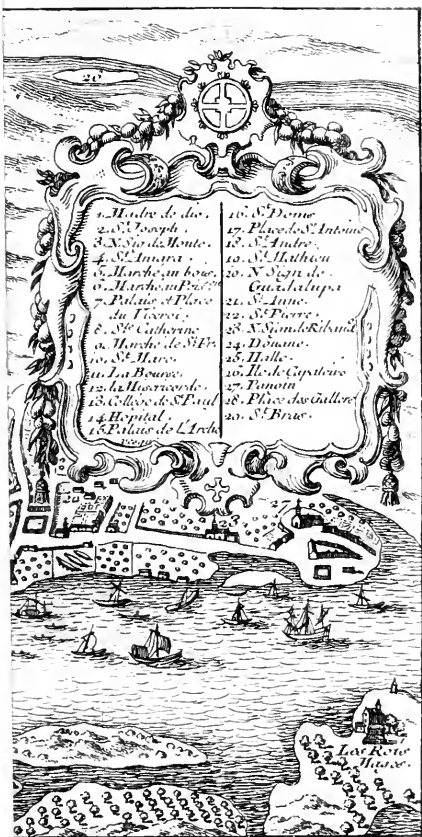 20
1. Madre de dio.
2. St Joseph.
3. N Sio de Monte.
4. St Amara.
5. Marche au bois.
6. Marche au
7. Palais et Place
du Viceroi.
8. Ste Catherine
9. Marche de St Fr.
10. St Marc.
11. La Bourse
12. la Misericorde.
13. College de St Paul
14. Hopital.
15. Palais de l'Arche
16. St Denis
17. Place de St Antoine
18. St Andre.
19. St Mathieu
20. N Sign de
Guadalupa
21. St Anne.
22. St Pierre.
23. N Sign de Riband
24. Douane.
25. Halle.
26. Ile de Capateiro
27. Panoin
28. Place des Gallere
29. St Bras.
23
Les Rois
Mages.